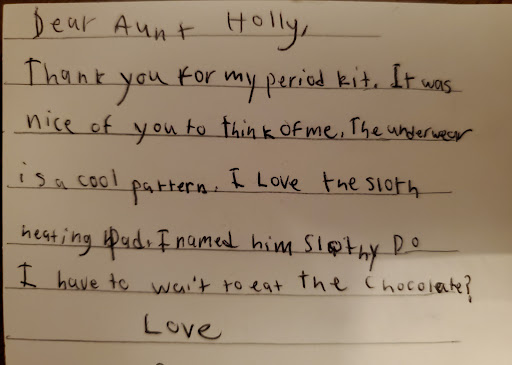 Dear Aunt Holly,
Thank you for my period kit. It was
nice of you to think of me. The underwear
is a cool pattern. I Love the sloth
heating pad. I named him Slothy Do
I have to wait to eat the chocolate?
Love